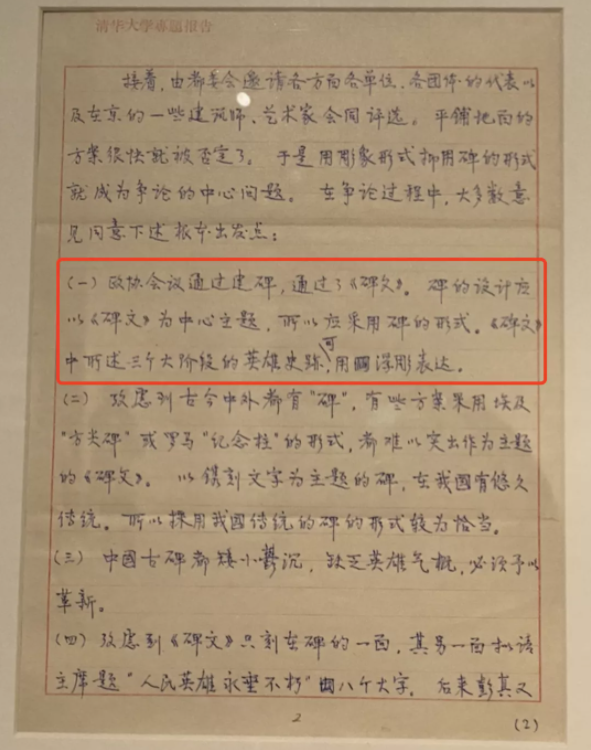 清华大学专题报告
接着，由都委会邀请各方面各单位、各团体的代表以
及在京的一些建筑师、艺术家会同评选。平铺地面的
方案很快就被否定了。于是用彫象形式抑用碑的形式
就成为争论的中心问题。在争论过程中，大多数意
见同意下述根本出发点：
(一) 政协会议通过建碑，通过了《碑文》。碑的设计应
以《碑文》为中心主题，所以应采用碑的形式。《碑文》
中所述三个大阶段的英雄史跡，可用浮彫表达。
(二) 攷慮到古今中外都有“碑”，有些方案采用埃及
“方尖碑”或罗马“纪念柱”的形式，都难以突出作为主题
的《碑文》。以镌刻文字为主题的碑，在我國有悠久
传统。所以採用我國传统的碑的形式较为恰当。
(三) 中國古碑都矮小鬱沉，缺乏英雄气概，必须予以
革新。
(四) 攷慮到《碑文》只刻在碑的一面，其另一面拟请
主席题“人民英雄永垂不朽”八个大字。后来彭真又
2
(2)